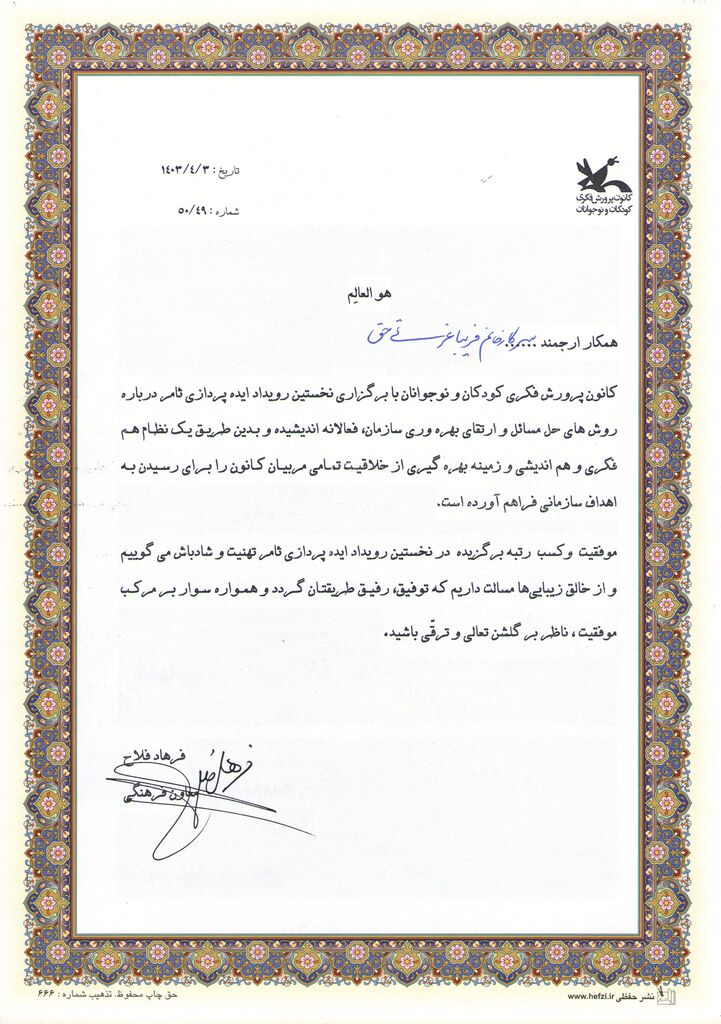 تاریخ : ١٤٠٣/٤/٣
کانون پرورش فکری
کودکان و نوجوانان
شماره : ٥٠/٤٩
هو العالِم
همکار ارجمند ..... سرکار خانم فریبا حق
کانون پرورش فکری کودکان و نوجوانان با برگزاری نخستین رویداد ایده پردازی ثامر درباره
روش های حل مسائل و ارتقای بهره وری سازمان، فعالانه اندیشیده و بدین طریق یک نظام هم
فکری و هم اندیشی و زمینه بهره گیری از خلاقیت تمامی مربیان کانون را برای رسیدن به
اهداف سازمانی فراهم آورده است.
موفقیت وکسب رتبه برگزیده در نخستین رویداد ایده پردازی ثامر تهنیت و شادباش می گوییم
و از خالق زیبایی‌ها مسالت داریم که توفیق، رفیق طریقتان گردد و همواره سوار بر مرکب
موفقیت ، ناظر بر گلشن تعالی و ترقّی باشید.
فرهاد فلاح
معاون فرهنگی
نشر حفظی www.hefzi.ir
حق چاپ محفوظ. تذهیب شماره : ۶۶۶